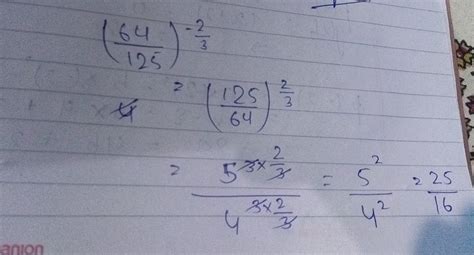 (64/125)^-2/3
4 = (125/64)^2/3
= 5^3×2/3 / 4^3×2/3 = 5^2/4^2 = 25/16
anion